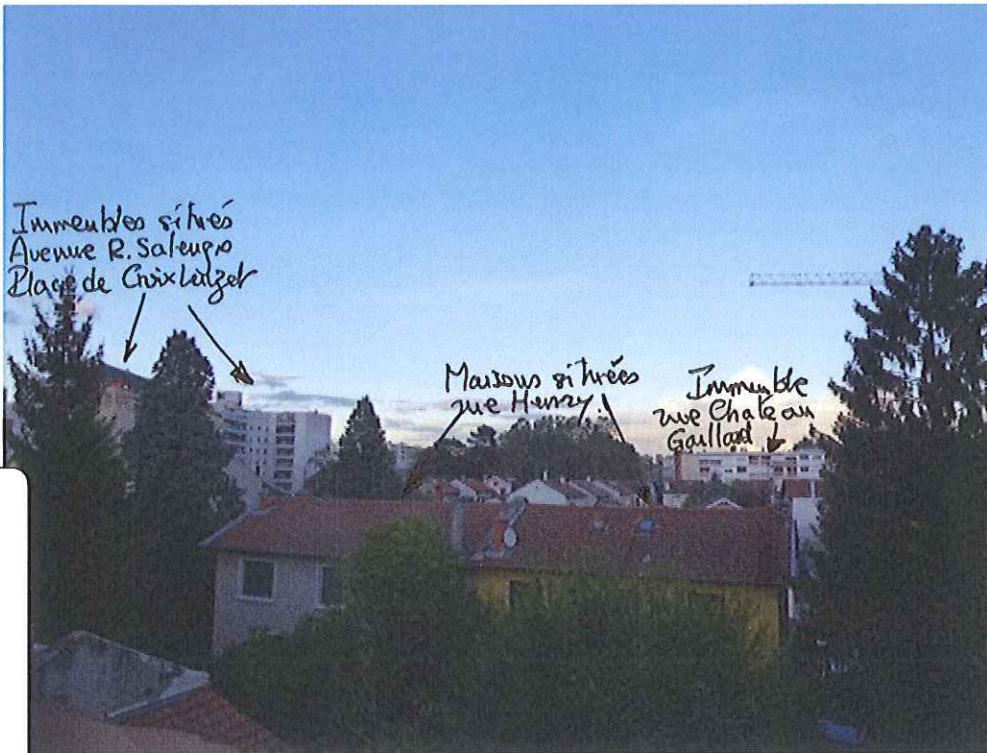 Immeubles situés
Avenue R. Salengro
Place de Croix Luizet
Maisons situées
rue Henry
Immeuble
rue Chateau
Gaillard